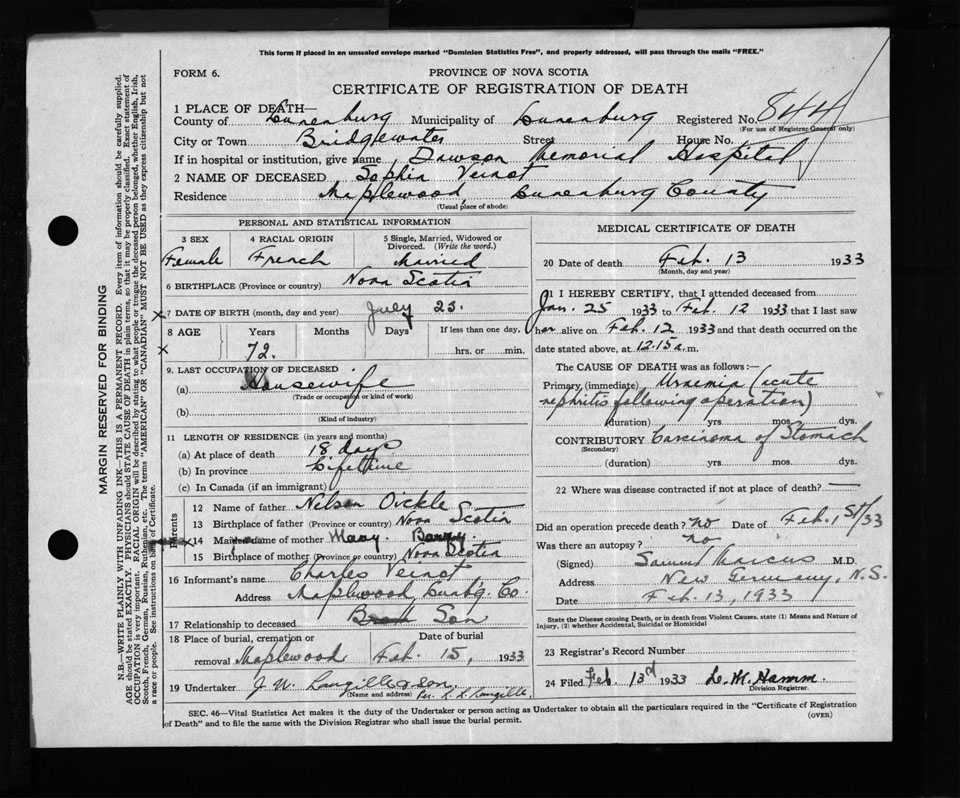 This form if placed in an unsealed envelope marked "Dominion Statistics Free", and properly addressed, will pass through the mails "FREE."
FORM 6.
PROVINCE OF NOVA SCOTIA
CERTIFICATE OF REGISTRATION OF DEATH
1 PLACE OF DEATH—
County of Lunenburg Municipality of Lunenburg Registered No. 844
(For use of Registrar General only)
City or Town Bridgewater Street House No.
If in hospital or institution, give name, Dawson Memorial Hospital
2 NAME OF DECEASED Sophia Veinot
Residence Maplewood, Lunenburg County
(Usual place of abode)
MARGIN RESERVED FOR BINDING
N.B.—WRITE PLAINLY WITH UNFADING INK—THIS IS A PERMANENT RECORD. Every item of information should be carefully supplied.
AGE should be stated EXACTLY. PHYSICIANS should STATE CAUSE OF DEATH in plain terms, so that it may be properly classified. Exact statement of
OCCUPATION is very important. RACIAL ORIGIN will be described by stating to what people or tongue the deceased person belonged, whether English, Irish,
Scotch, French, German, Russian, Ruthenian, etc. The terms "AMERICAN" OR "CANADIAN" MUST NOT BE USED as they express citizenship but not
a race or people. See instructions on back of Certificate.
PERSONAL AND STATISTICAL INFORMATION
3 SEX
Female
4 RACIAL ORIGIN
French
5 Single, Married, Widowed or
Divorced. (Write the word.)
Married
6 BIRTHPLACE (Province or country) Nova Scotia
x 7 DATE OF BIRTH (month, day and year) July 23.
8 AGE Years Months Days If less than one day.
x 72. hrs. or min.
9. LAST OCCUPATION OF DECEASED
(a) Housewife
(Trade or occupation or kind of work)
(b)
(Kind of industry)
11 LENGTH OF RESIDENCE (in years and months)
(a) At place of death 18 days
(b) In province Lifetime
(c) In Canada (if an immigrant)
Parents
12 Name of father Nelson Oickle
13 Birthplace of father (Province or country) Nova Scotia
x 14 Maiden name of mother Mary.
15 Birthplace of mother (Province or country) Nova Scotia
16 Informant's name Charles Veinot
Address Maplewood, Lunbg. Co.
17 Relationship to deceased Son
18 Place of burial, cremation or Date of burial
removal Maplewood Feb. 15, 1933
19 Undertaker J. W. Langille & son.
(Name and address) Per.
MEDICAL CERTIFICATE OF DEATH
20 Date of death Feb. 13 1933
(Month, day and year)
21 I HEREBY CERTIFY, that I attended deceased from
Jan. 25 1933 to Feb. 12 1933 that I last saw
her alive on Feb. 12 1933 and that death occurred on
date stated above, at 12.15 a. m.
The CAUSE OF DEATH was as follows:—
Primary (immediate) Uraemia (acute
nephritis following operation)
(duration) yrs. mos. dys.
CONTRIBUTORY Carcinoma of Stomach
(Secondary)
(duration) yrs. mos. dys.
22 Where was disease contracted if not at place of death? —
Did an operation precede death? no Date of Feb. 1st/33
Was there an autopsy? no
(Signed) Samuel Marcus M.D.
Address New Germany, N.S.
Date Feb. 13, 1933
State the Disease causing Death, or in death from Violent Causes, state (1) Means and Nature of
Injury, (2) whether Accidental, Suicidal or Homicidal
23 Registrar's Record Number
24 Filed Feb. 13th 1933 L. M. Hamm.
Division Registrar.
SEC. 46—Vital Statistics Act makes it the duty of the Undertaker or person acting as Undertaker to obtain all the particulars required in the "Certificate of Registration
of Death" and to file the same with the Division Registrar who shall issue the burial permit.
(OVER)